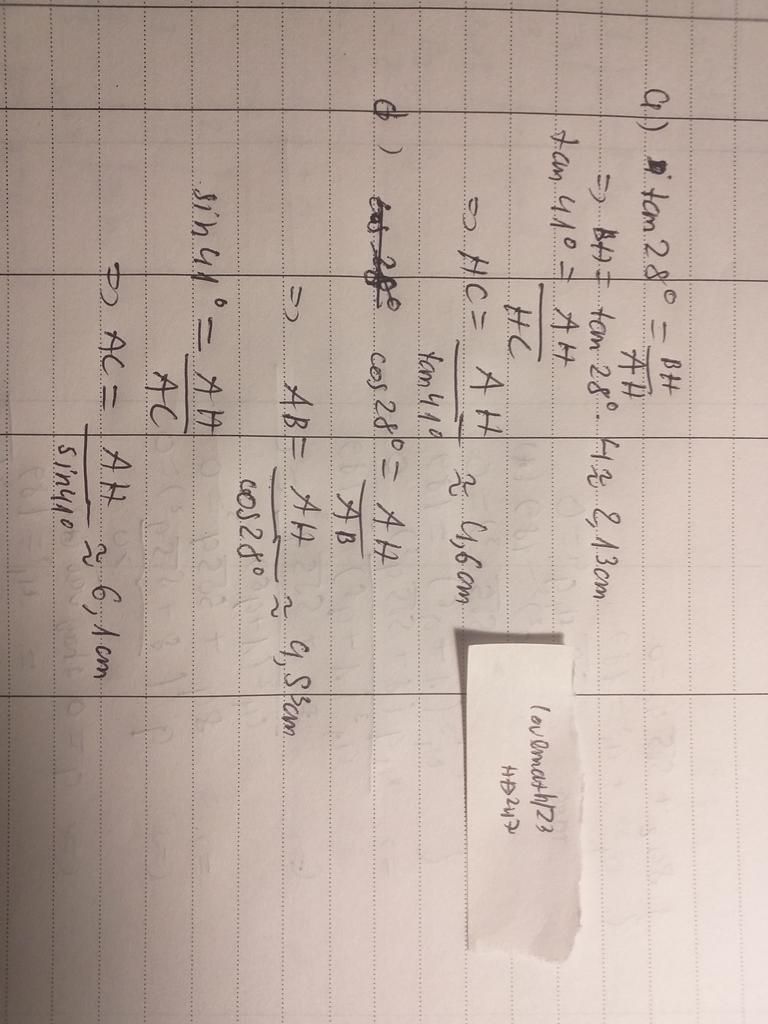 a) tan 28° = BH/AH
=> BH = tan 28° . 4 ≈ 2,13cm
tan 41° = AH/HC
=> HC = AH/tan 41° ≈ 4,6cm
b) cos 28° cos 28° = AH/AB
=> AB = AH/cos 28° ≈ 4,53cm
sin 41° = AH/AC
=> AC = AH/sin 41° ≈ 6,1cm
lovemath123